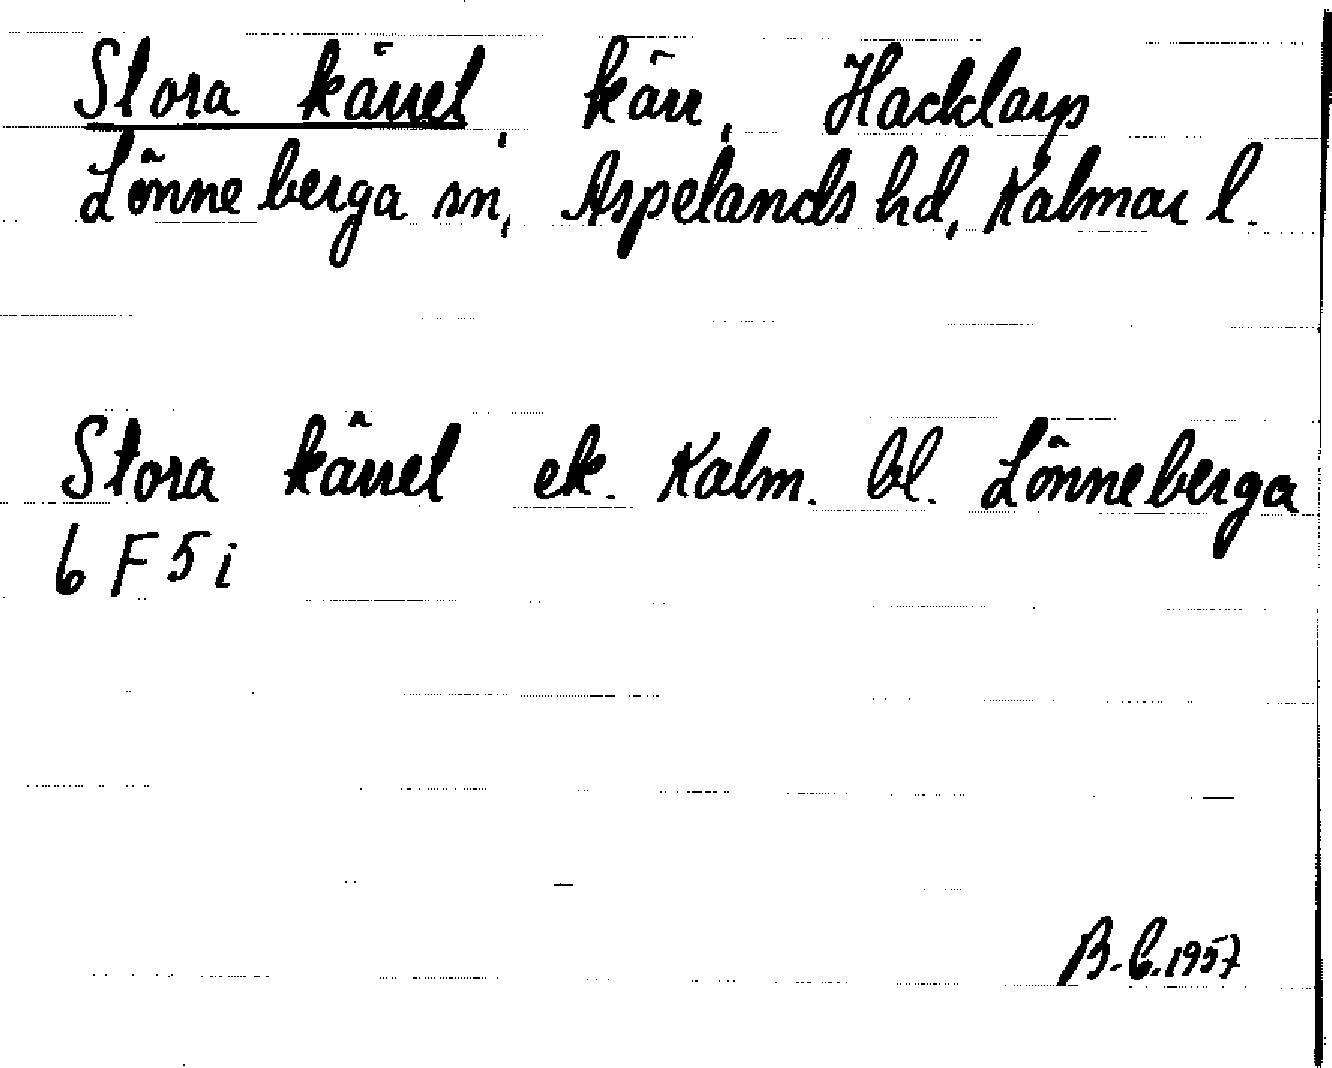 Stora kärret, kärr, Hacklarp
Lönneberga sn, Aspelands hd, Kalmar l.
Stora kärret ek. Kalm. bl. Lönneberga
6 F 5 i
B-C. 1957